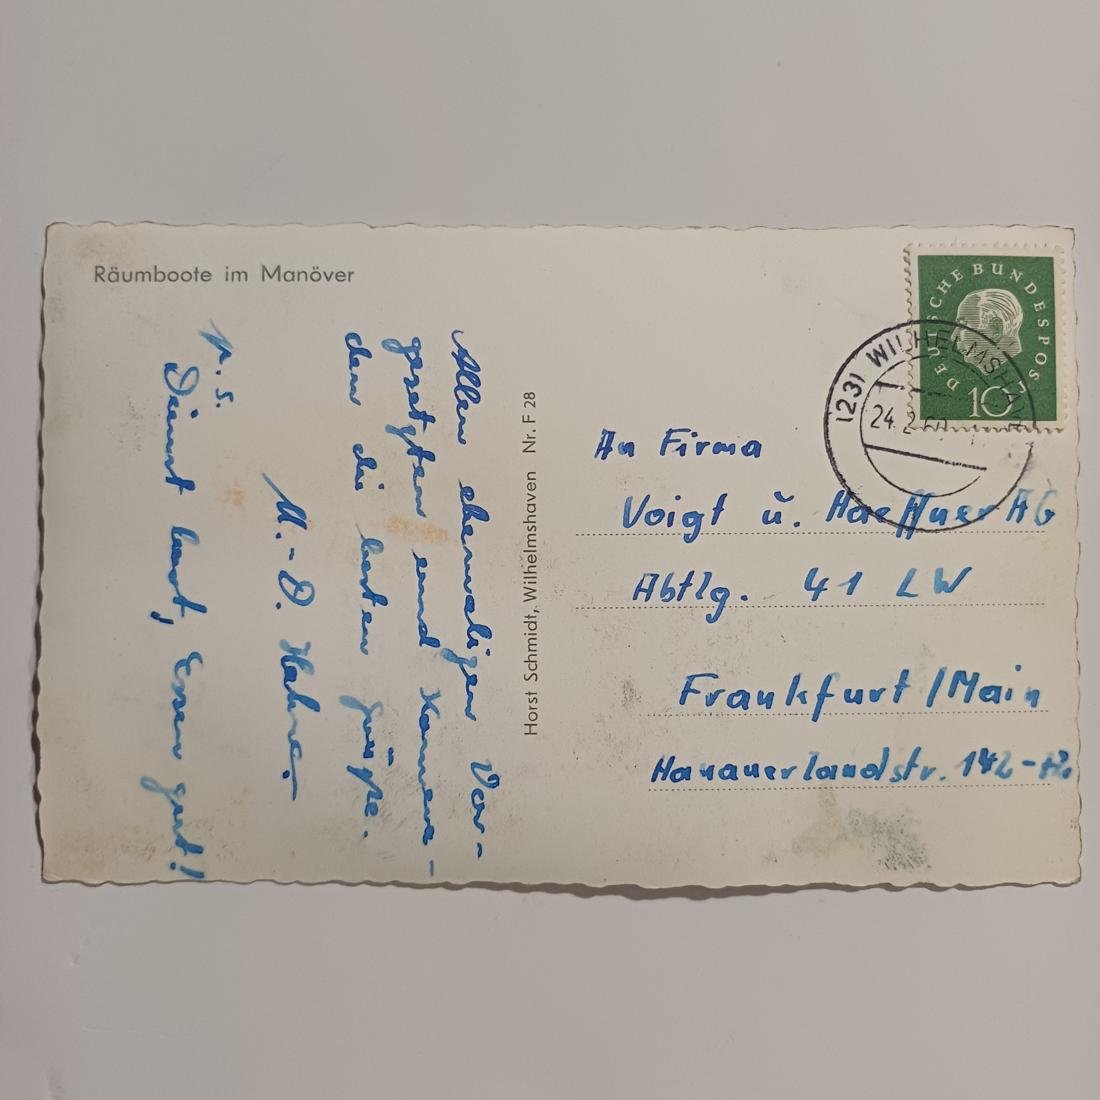 Räumboote im Manöver
Allen ehemaligen Vor-
gesetzten und Kamera-
den die besten Grüße.
M.-D.
P.S.
Dienst laut, Essen gut!
Horst Schmidt, Wilhelmshaven Nr. F 28
DEUTSCHE BUNDESPOST
10
(23) WILHELMSHAVEN
24.2.60
An Firma
Voigt u. Haeffner AG
Abtlg. 41 LW
Frankfurt/Main
Hanauerlandstr. 142-